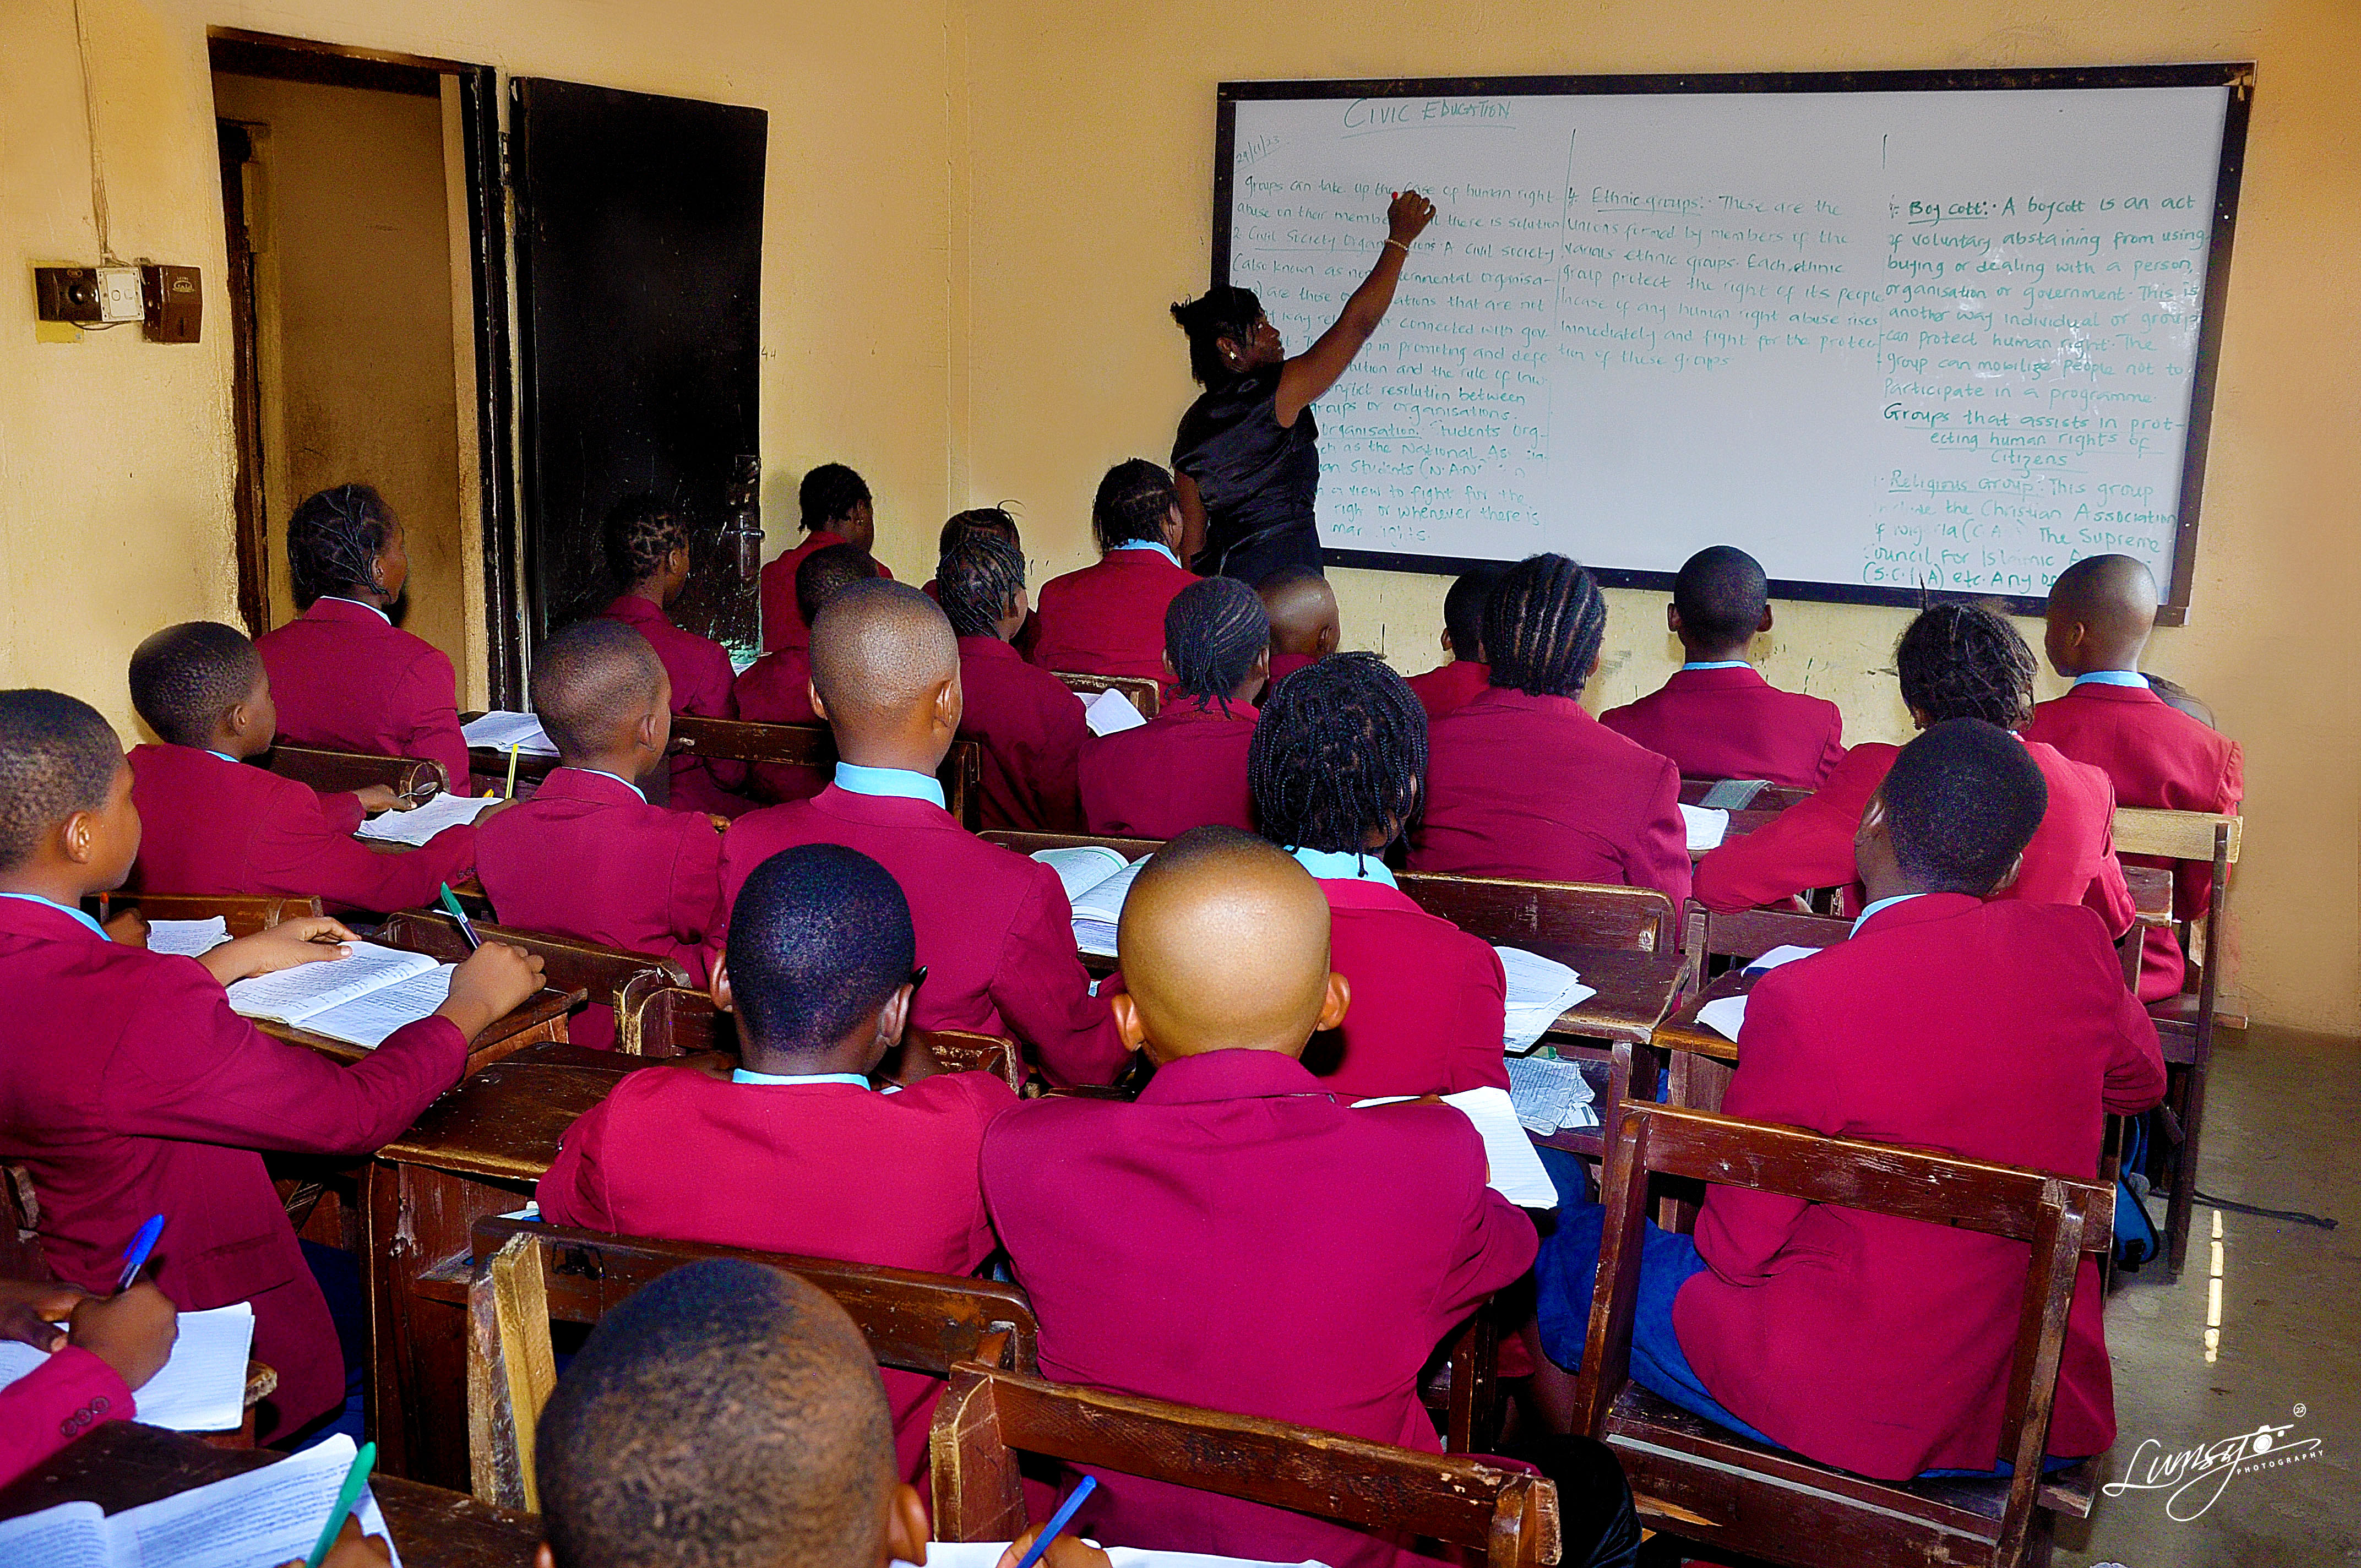 CIVIC EDUCATION
29/11/23
groups can take up the case of human right
abuse on their membe there is solution
2 Civil Society Organ : A civil society
(also known as no ernmental organisa-
are those o ations that are not
way re connected with gov-
in promoting and defe-
ution and the rule of law
nflict resolution between
groups or organisations.
organisation: Students org-
ch as the National As
an Students (N.A.N
a view to fight for the
righ or whenever there is
man ights.
4. Ethnic groups:- These are the
unions formed by members of the
various ethnic groups. Each ethnic
group protect the right of its people
Incase of any human right abuse rises
Immediately and fight for the protec-
tion of these groups
Boycott:- A boycott is an act
of voluntary abstaining from using,
buying or dealing with a person,
organisation or government. This is
another way individual or group
can protect human right. The
group can mobilize people not to
participate in a programme.
Groups that assists in prot-
ecting human rights of
Citizens
1. Religious Group: This group
the Christian Association
of (C.A The Supreme
Council for Islamic A
(S.C.I.A) etc. Any
22
Lumsy
PHOTOGRAPHY